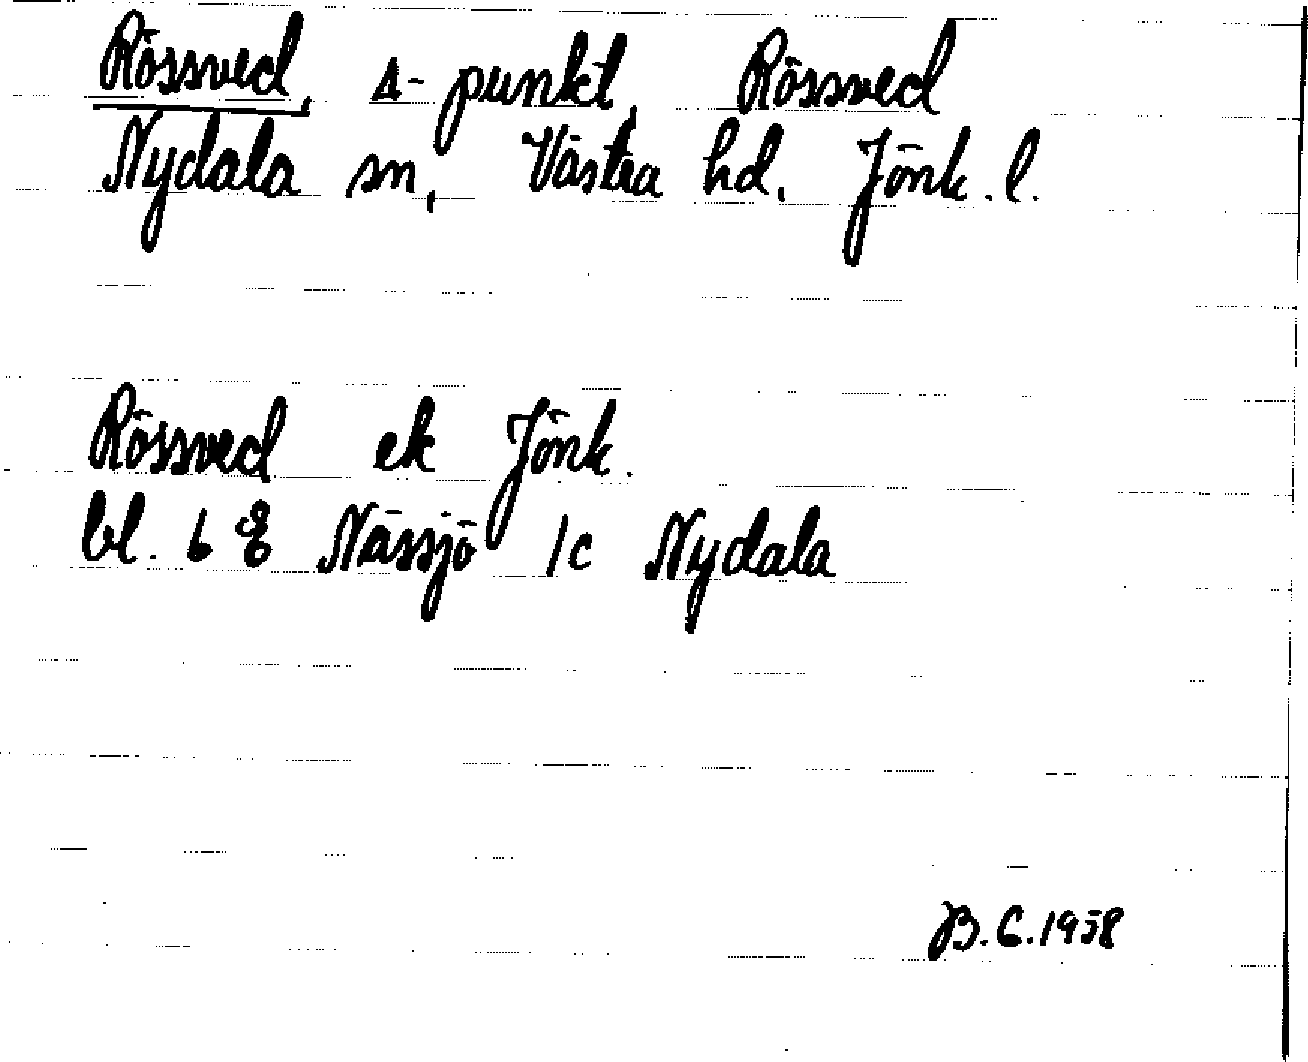 Rössved, Δ-punkt, Rössved
Nydala sn, Västra hd. Jönk. l.
Rössved ek Jönk.
bl. 6 Nässjö 1c Nydala
B.C. 1958